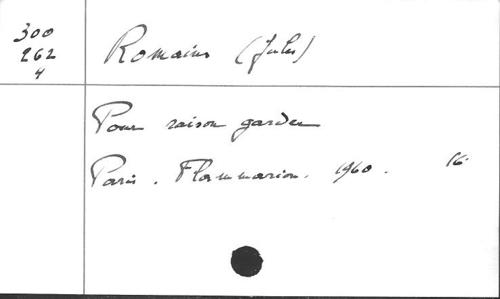 300
262
4
Romains (Jules)
Pour raison garder
Paris. Flammarion. 1960. 16°